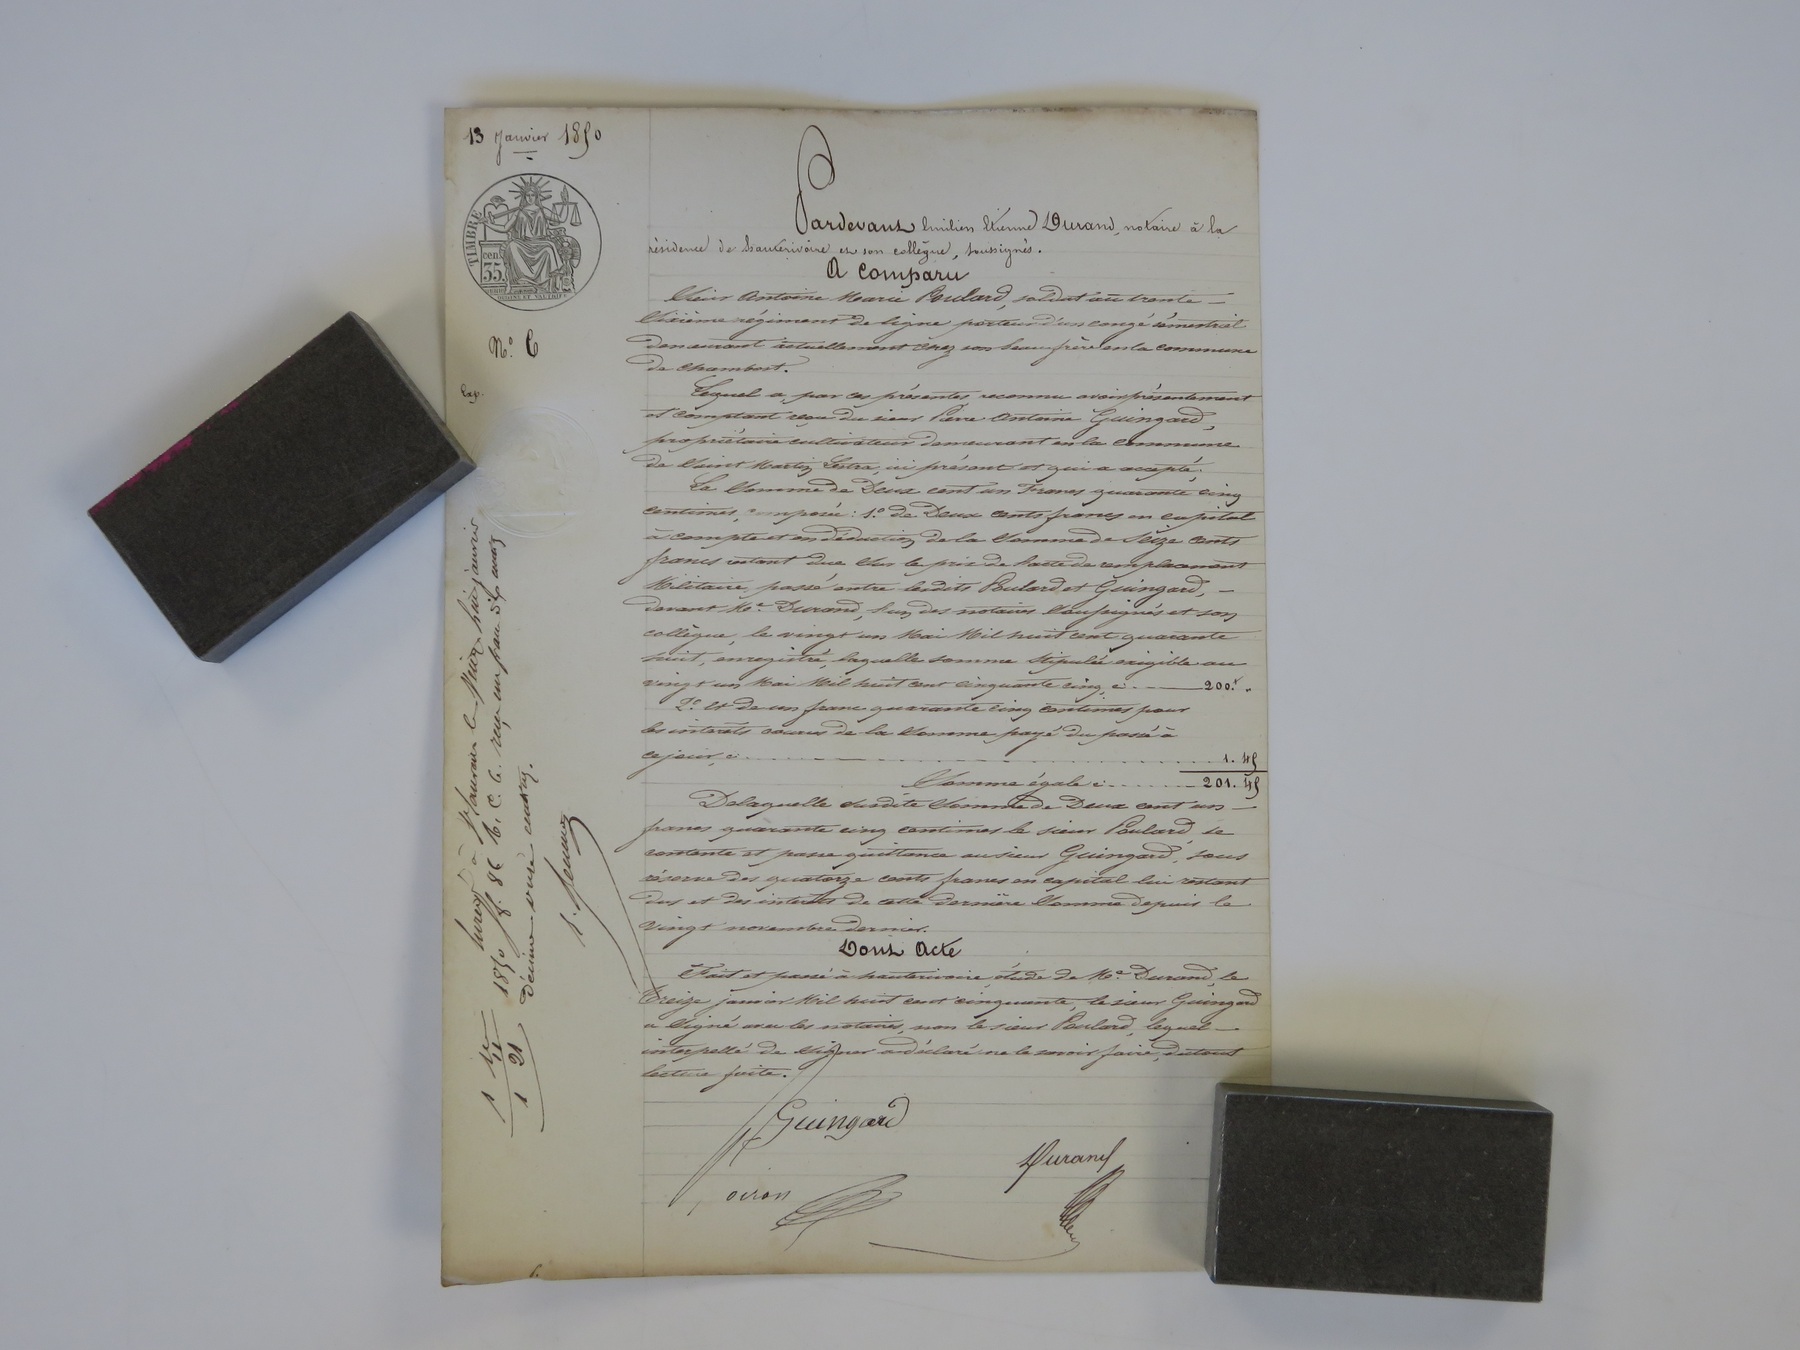 13 Janvier 1850
TIMBRE
cen.
35
N.o 6
Exp.
Pardevant Emilien Etienne Durand, notaire à la
résidence de hauterivoire et son collègue, soussignés.
A Comparu
Sieur Antoine Marie Poulard, soldat au trente –
Sixième régiment de ligne porteur d'un congé sémestriel
demeurant actuellement chez son beau frère en la commune
de Chambost.
Lequel a, par ces présentes reconnu avoir présentement
et comptant reçu du sieur Pierre Antoine Guingard,
propriétaire cultivateur demeurant en la commune
de Saint Martin Lestra, ici présent et qui a accepté.
La Somme de Deux cent un Francs quarante cinq
centimes, composée : 1.o de Deux cents francs en capital
à compte et en déduction de la Somme de Seize cents
francs restant due Sur le prix de l'acte de remplacement
Militaire, passé entre lesdits Poulard et Guingard, –
devant Me. Durand, l'un des notaires Soussignés et son
collègue, le vingt un Mai Mil huit cent quarante
huit, enregistré, laquelle somme stipulée exigible au
vingt un Mai Mil huit cent cinquante cinq, ci 200.f „
2.o Et de un franc quarante cinq centimes pour
les intérêts courus de la Somme payé du passé à
ce jour, ci 1. 45
Somme égale ci 201. 45
De laquelle susdite Somme de Deux cent un –
francs quarante cinq centimes le sieur Poulard se
contente et passe quittance au sieur Guingard, sous
réserve des quatorze cents francs en capital lui restant
dus et des intérêts de cette dernière Somme depuis le
vingt novembre dernier.
Dont Acte
Fait et passé à hauterivoire, étude de Me. Durand, le
Treize janvier Mil huit cent cinquante, le sieur Guingard
a Signé avec les notaires, non le sieur Poulard, lequel –
interpellé de Signer a déclaré ne le savoir faire, du tout
lecture faite.
Guingard
Durand
1850 f. 86 R. C. 6. reçu un franc dix cent.
Décime onze centimes.
1 10
11
1 21